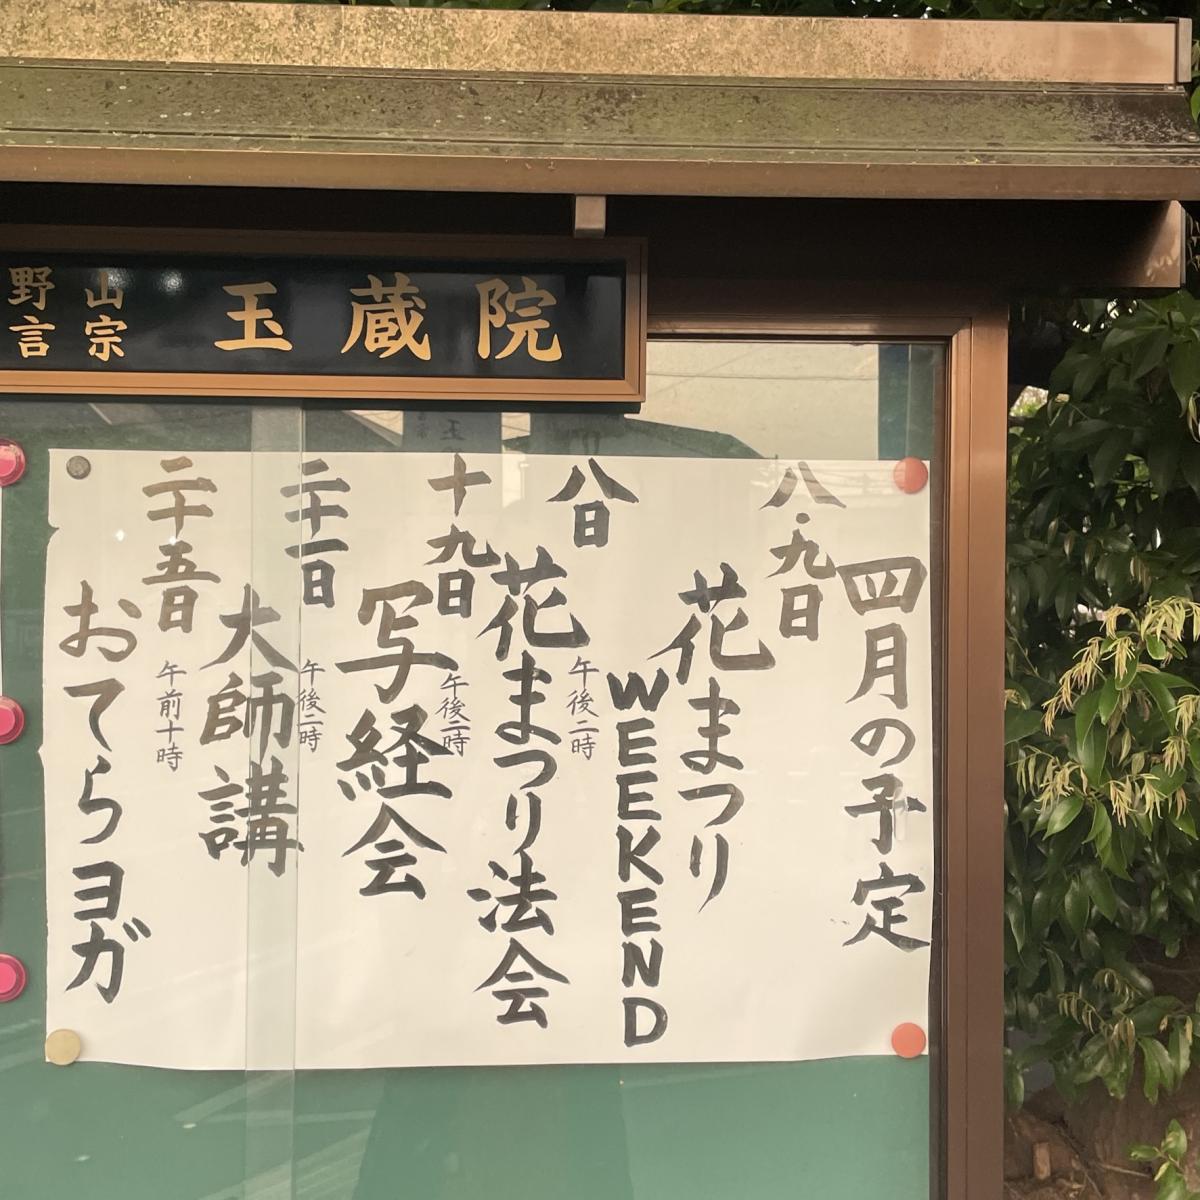 野山
言宗
玉蔵院
四月の予定
八・九日
花まつり
WEEKEND
八日
午後二時
花まつり法会
十九日
午後二時
写経会
二十一日
午後二時
大師講
二十五日
午前十時
おてらヨガ